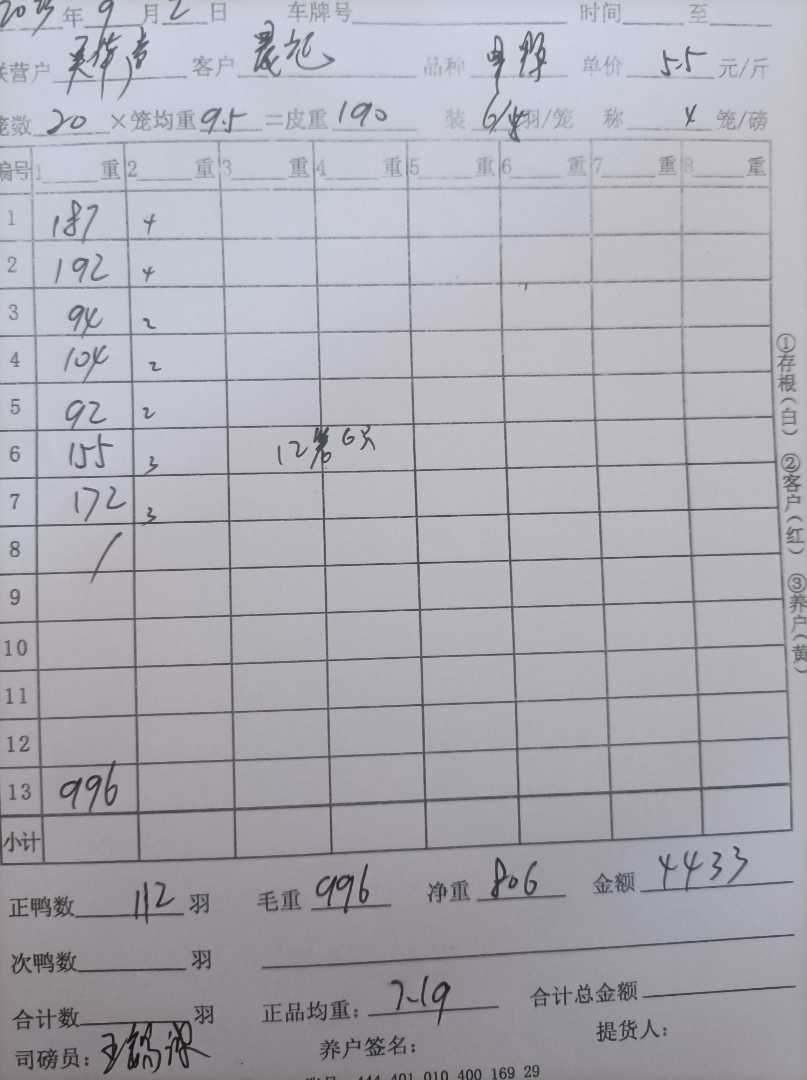 年 9 月 2 日 车牌号 时间 至
联营户 客户 晨旭 品种 单价 5.5 元/斤
笼数 20 ×笼均重 9.5 =皮重 190 装 6/ 羽/笼 称 4 笼/磅
编号 1 重 2 重 3 重 4 重 5 重 6 重 7 重 8 重
1 187 4
2 192 4
3 94 2
4 104 2
5 92 2
6 155 3 12笼6只
7 172 3
8 /
9
10
11
12
13 996
小计
正鸭数 112 羽 毛重 996 净重 806 金额 4433
次鸭数 羽
合计数 羽 正品均重: 7.19 合计总金额
司磅员: 养户签名: 提货人:
444 401 010 400 169 29
①存根(白) ②客户(红) ③养户(黄)